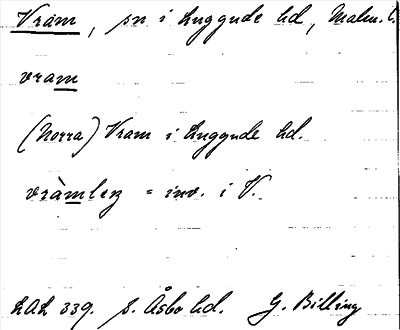 Vram, sn i Luggude hd, Malm. l.
vram
(Norra) Vram i Luggude hd.
vràmleŋ = inv. i V.
LAL 339. S. Åsbo hd. G. Billing